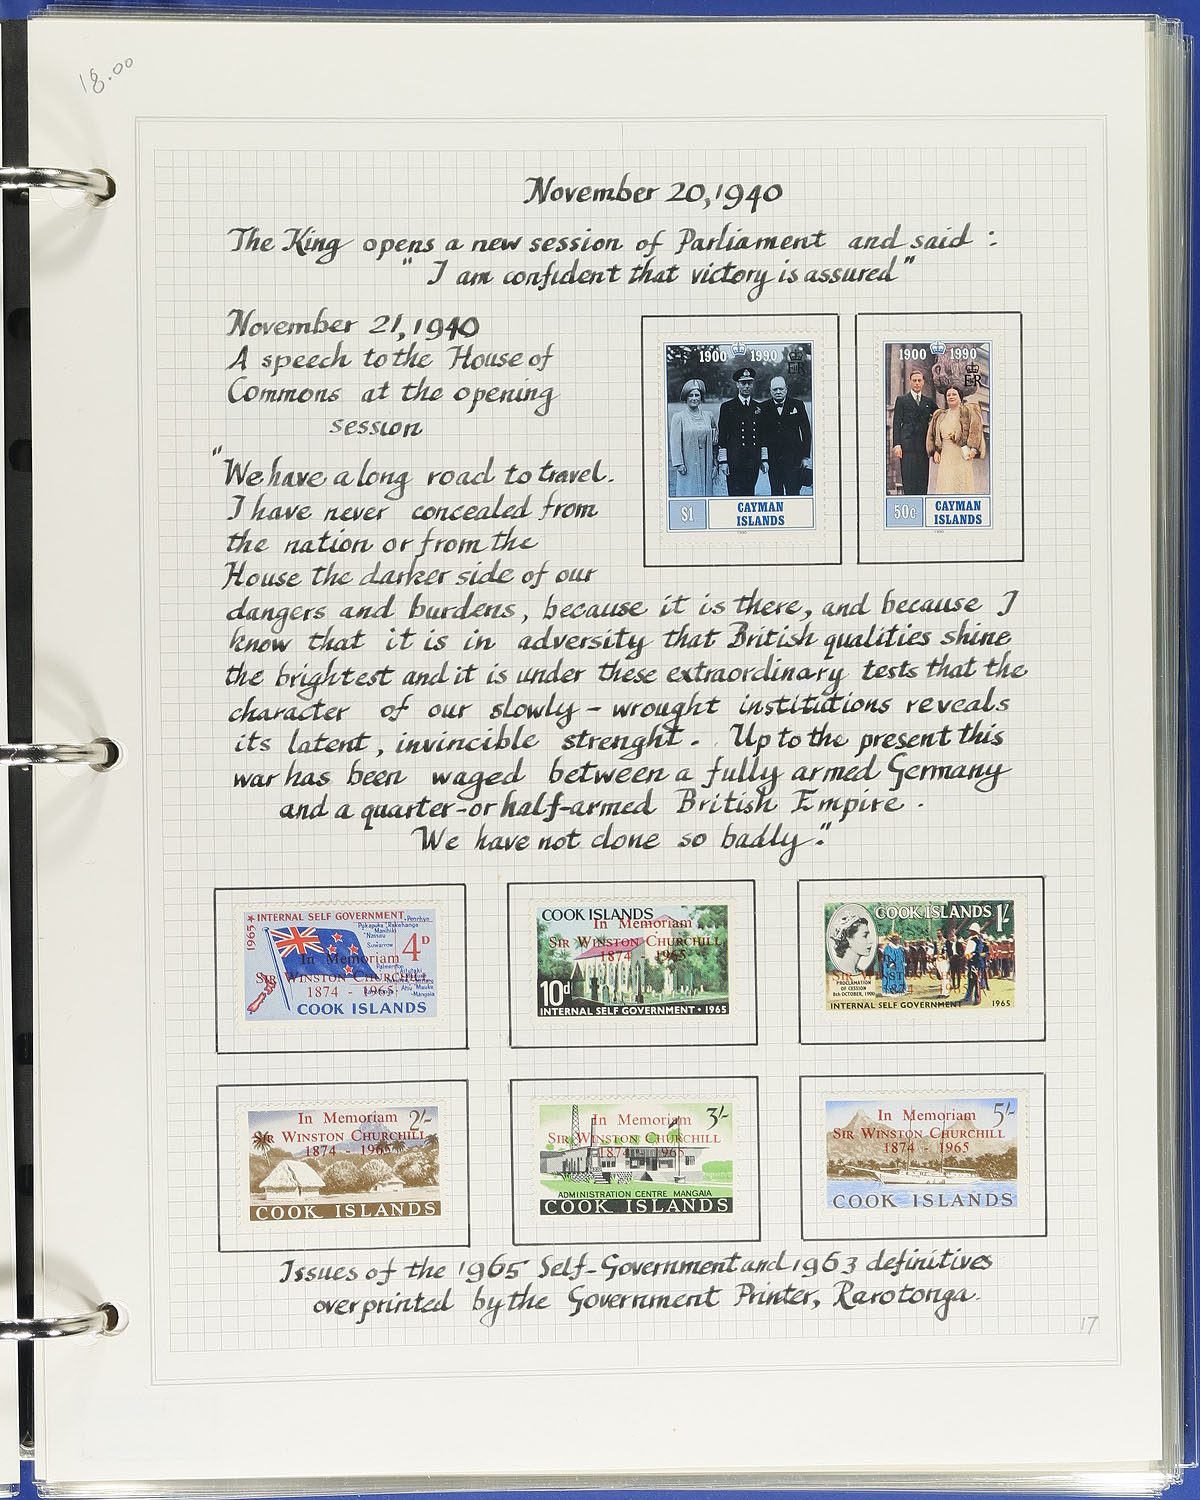 18.00
November 20, 1940
The King opens a new session of Parliament and said :
" I am confident that victory is assured"
November 21, 1940
A speech to the House of
Commons at the opening
session
"We have a long road to travel.
I have never concealed from
the nation or from the
House the darker side of our
dangers and burdens, because it is there, and because I
know that it is in adversity that British qualities shine
the brightest and it is under these extraordinary tests that the
character of our slowly - wrought institutions reveals
its latent, invincible strenght. Up to the present this
war has been waged between a fully armed Germany
and a quarter-or half-armed British Empire.
We have not done so badly."
1900 1990
ER
$1
CAYMAN
ISLANDS
1900 1990
ER
50c
CAYMAN
ISLANDS
INTERNAL SELF GOVERNMENT
1965
Penrhyn
Pukapuka Rakahanga
Manihiki
Nassau
Suwarrow
4D
Palmerston
In Memoriam
SIR WINSTON CHURCHILL
1874 - 1965
Mauke
Mangaia
COOK ISLANDS
COOK ISLANDS
In Memoriam
SIR WINSTON CHURCHILL
1874 - 1965
10d
INTERNAL SELF GOVERNMENT • 1965
COOK ISLANDS 1/-
In Memoriam
SIR WINSTON CHURCHILL
1874 - 1965
PROCLAMATION
OF CESSION
8th OCTOBER, 1900
INTERNAL SELF GOVERNMENT 1965
In Memoriam 2/-
SIR WINSTON CHURCHILL
1874 - 1965
COOK ISLANDS
In Memoriam 3/-
SIR WINSTON CHURCHILL
1874 - 1965
ADMINISTRATION CENTRE MANGAIA
COOK ISLANDS
In Memoriam 5/-
SIR WINSTON CHURCHILL
1874 - 1965
COOK ISLANDS
Issues of the 1965 Self-Government and 1963 definitives
overprinted by the Government Printer, Rarotonga.
17